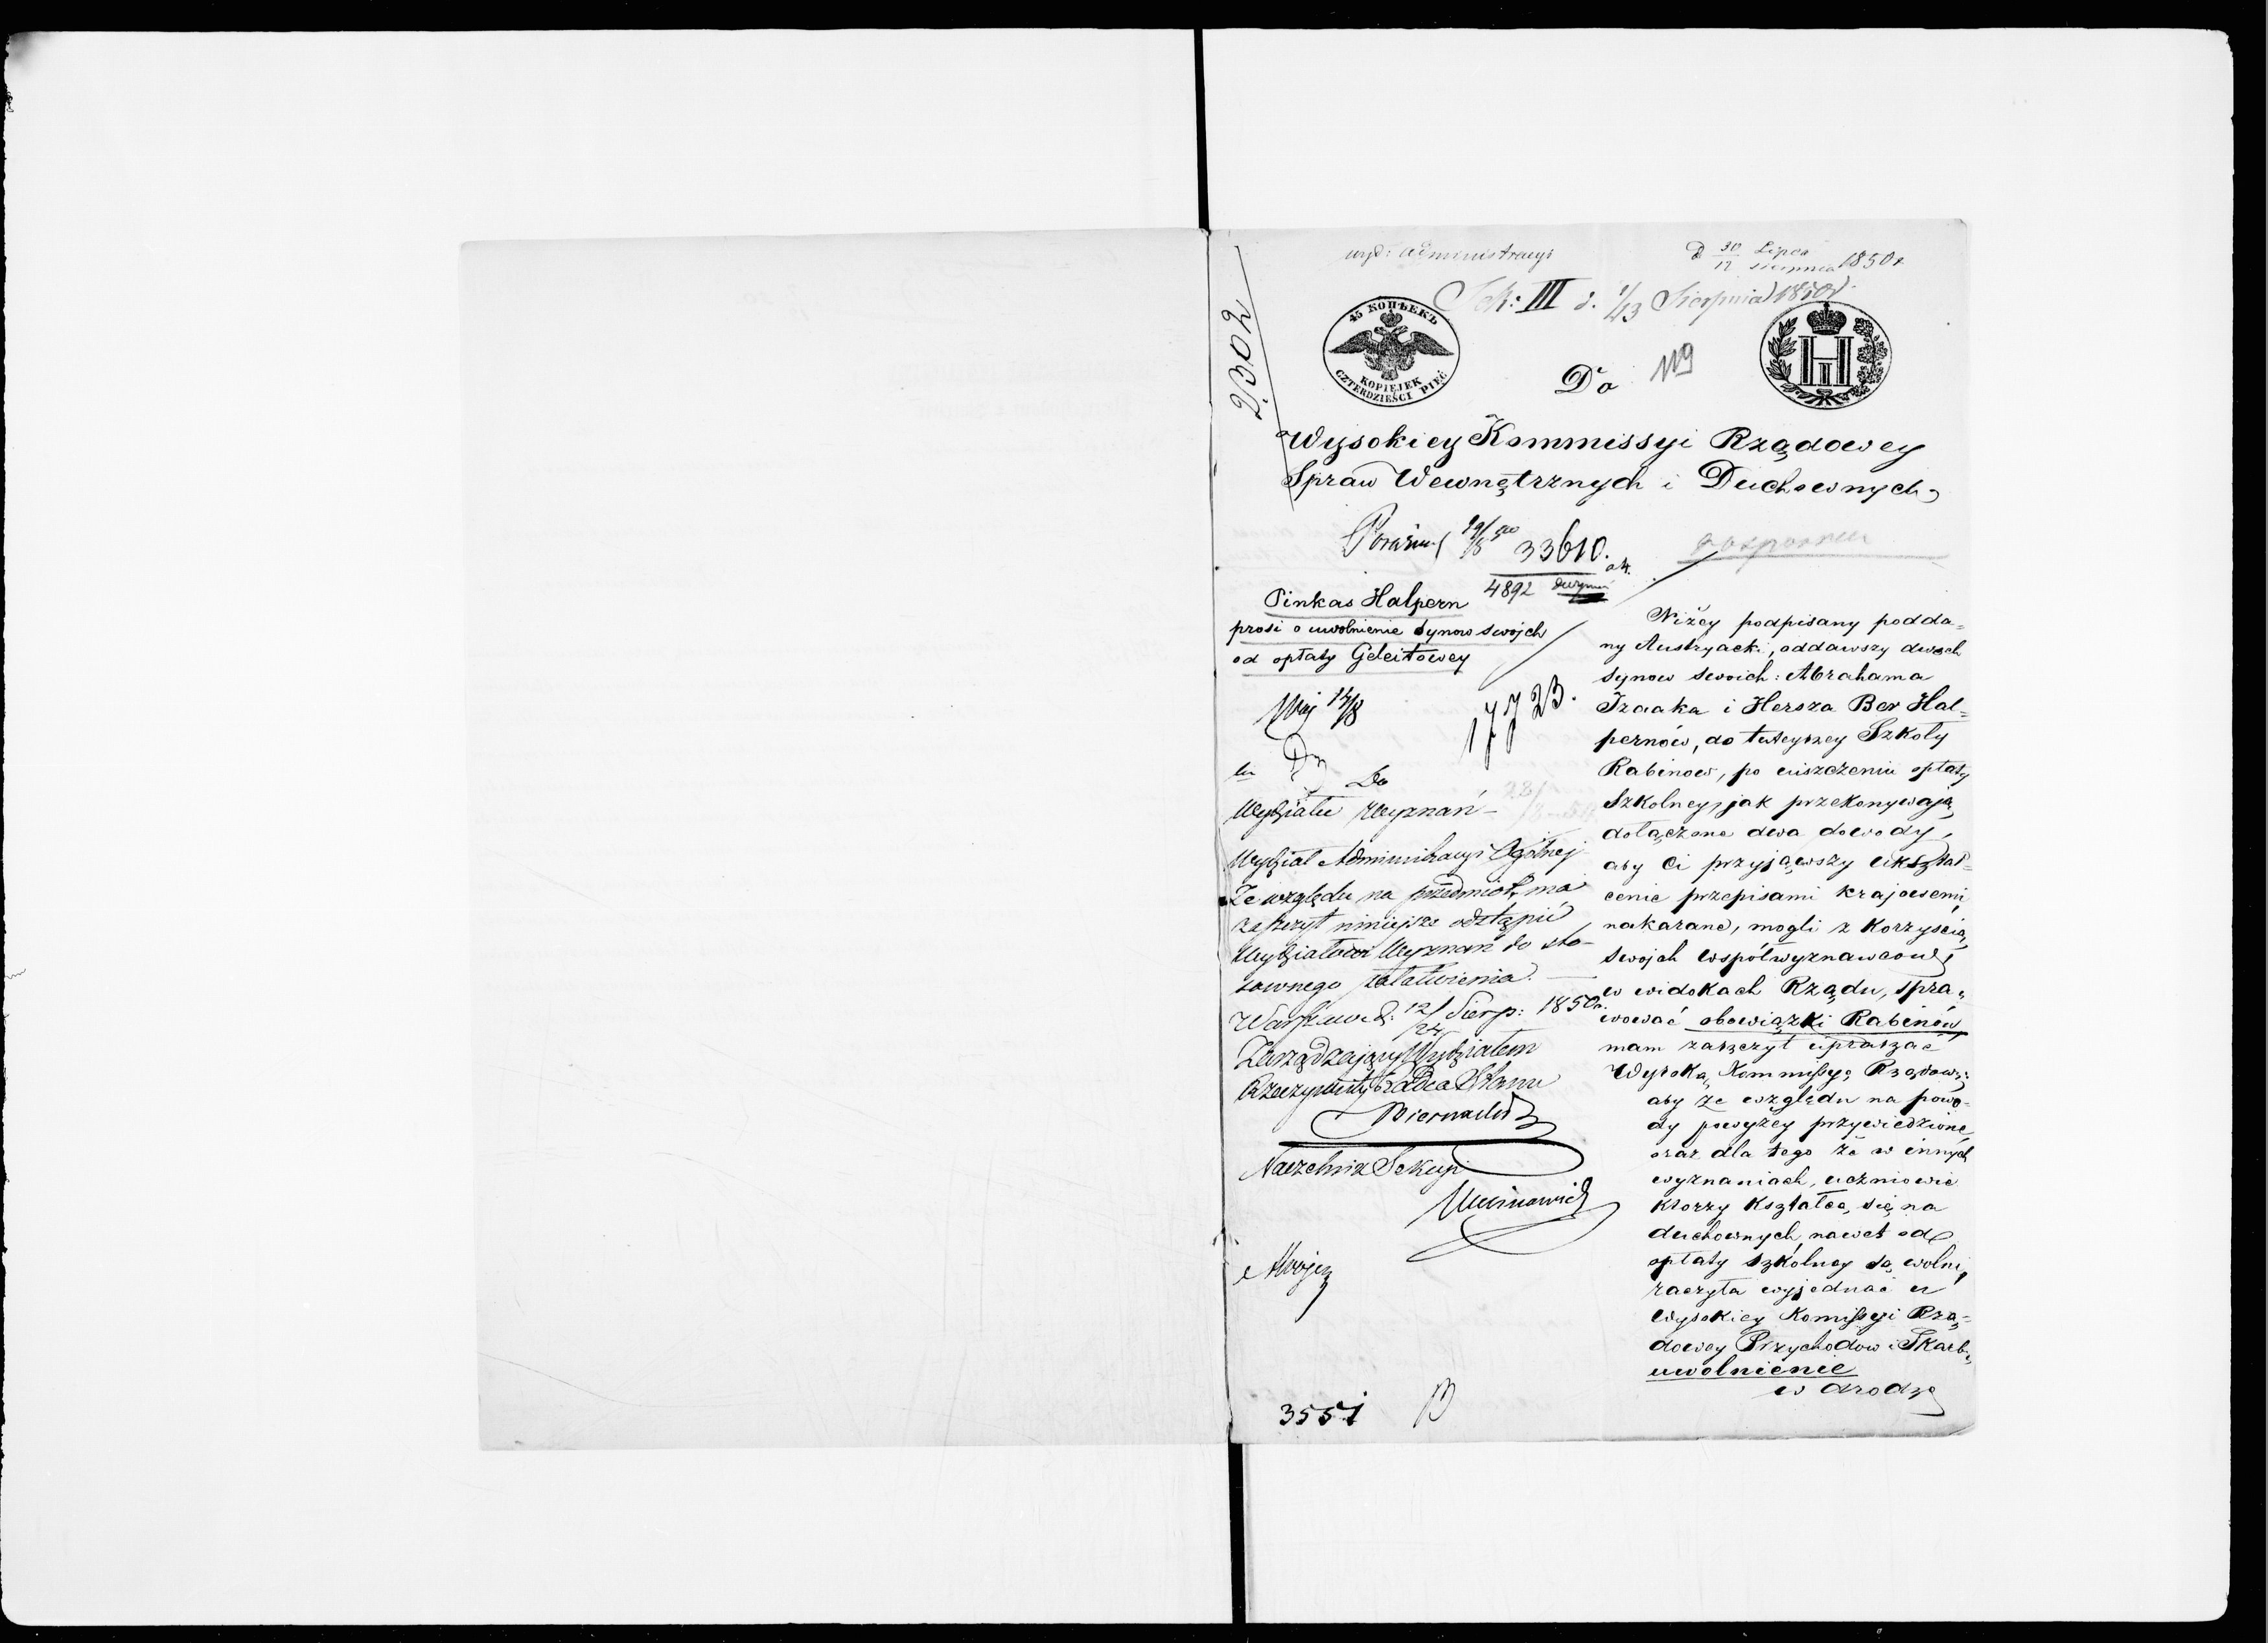 wyd: Administracyi
D 30/12 Lipca sierpnia 1850 r
Sek: III d. 1/13 Sierpnia 1850 r.
2302
45 КОПѢЕКЪ
KOPIEJEK
CZTERDZIEŚCI PIĘĆ
Н I
Do
119
Wysokiey Kommissyi Rządowey
Spraw Wewnętrznych i Duchownych
33610.
4892
Pinkas Halpern
prosi o uwolnienie synow swojch
od opłaty Geleitowey
17723.
Do
Wydziału Wyznań
Wydział Administracyi Ogólnej
Ze względu na przedmiot, ma
zaszczyt niniejsze odstąpić
Wydziałowi Wyznań do sto-
sownego załatwienia.
Warszawa d: 12/24 Sierp: 1850 r.
Zarządzający Wydziałem
Rzeczywisty Radca Stanu
Naczelnik Sekcyi
3551
Niżey podpisany podda=
ny Austryacki, oddawszy dwóch
synow swoich: Abrahama
Izaaka i Hersza Ber Hal=
pernów, do tuteyszey Szkoły
Rabinow, po uiszczeniu opłaty
Szkolney, jak przekonywają
dołączone dwa dowody,
aby Ci przyjąwszy ukształ=
cenie przepisami krajowemi
nakazane, mogli z korzyścią
swojch współwyznawcow i
w widokach Rządu, spra=
wować obowiązki Rabinów,
mam zaszczyt upraszać
Wysoką Kommissyę Rządową:
aby ze względu na powo=
dy powyżey przywiedzione
oraz dla tego że w innych
wyznaniach, uczniowie
ktorzy kształcą się na
duchownych, nawet od
opłaty szkolney są wolni,
raczyła wyjednać u
Wysokiey Komissyi Rzą=
dowey Przychodow i Skarbu,
uwolnienie
w drodze